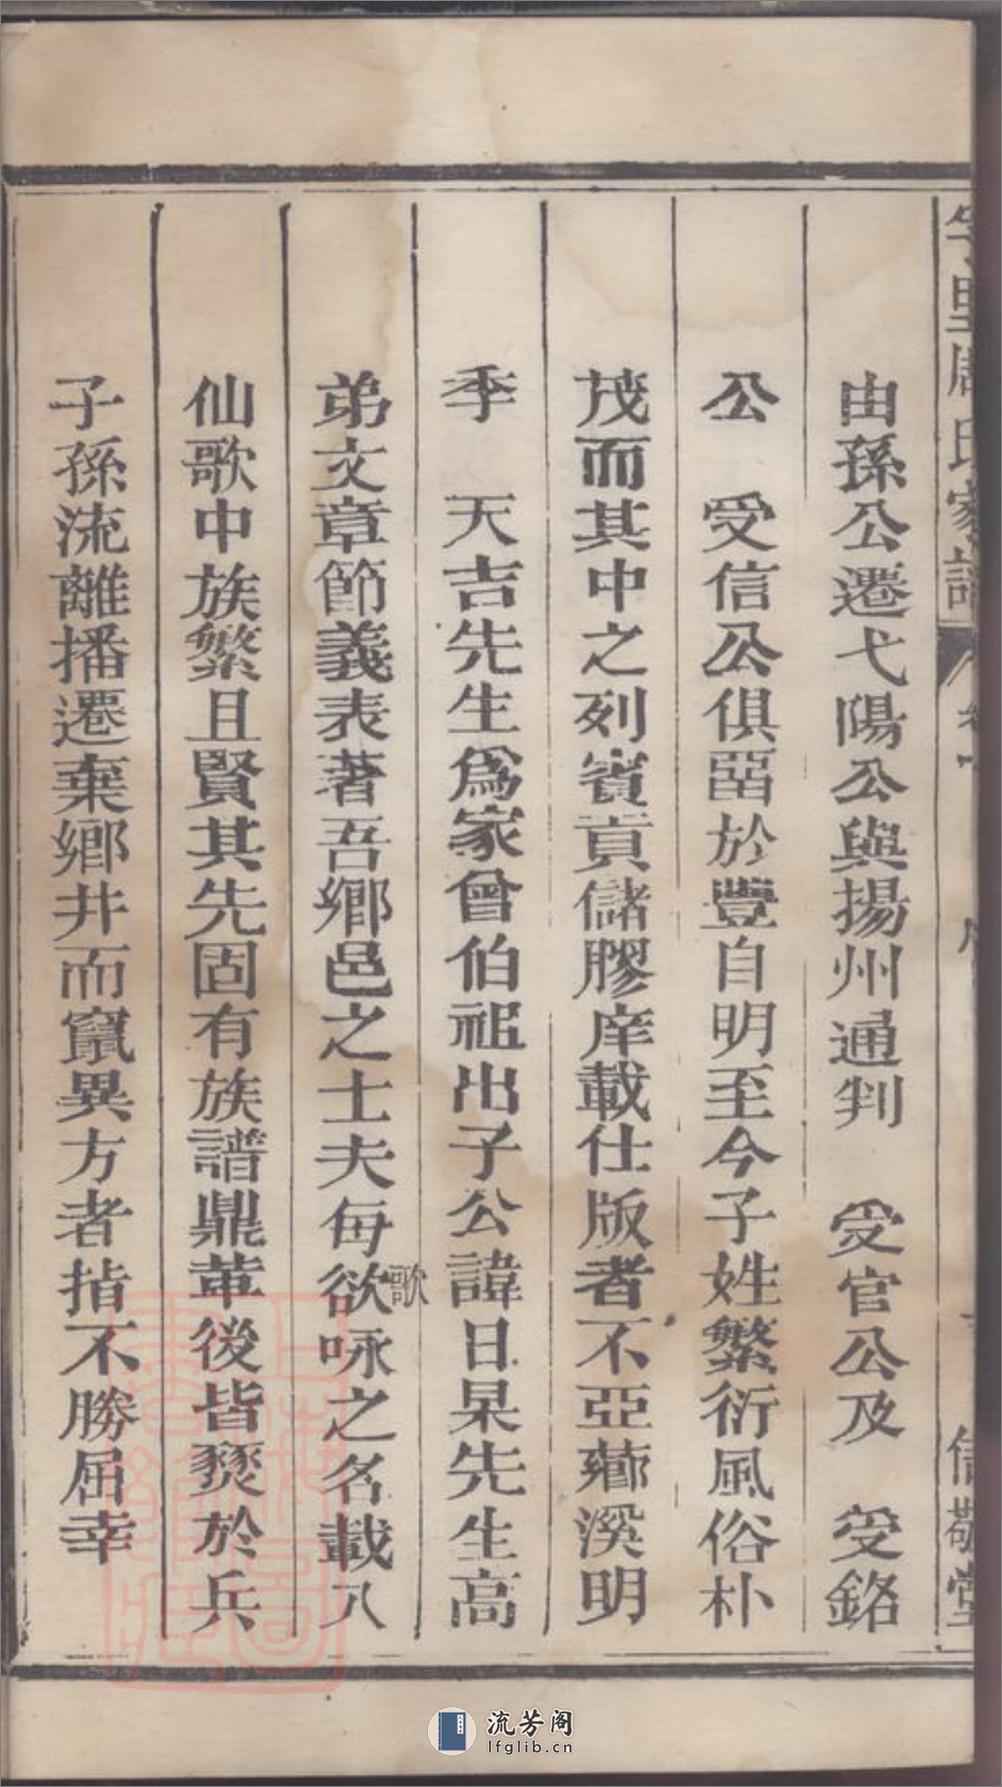 里周氏家譜
信敬堂
由孫公遷弋陽公與揚州通判　受官公及　受銘
公　受信公俱㽞於豐自明至今子姓繁衍風俗朴
茂而其中之列賓貢儲膠庠載仕版者不亞薌溪明
季　天吉先生爲家曾伯祖出子公諱日杲先生高
弟文章節義表著吾鄉邑之士夫每欲歌咏之名載八
仙歌中族繁且賢其先固有族譜鼎革後皆燹於兵
子孫流離播遷棄鄉井而竄異方者指不勝屈幸
流芳阁
lfglib.cn